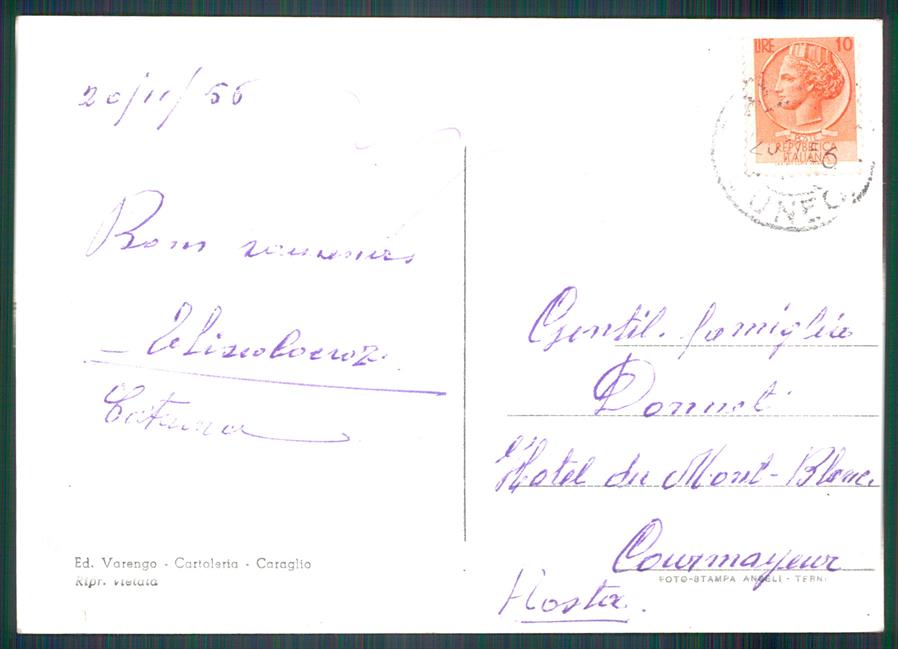 20/11/56
LIRE 10
POSTE
REPVBBLICA
ITALIANA
UNEO
Bons souvenirs
Gentil. famiglia
l'Hotel du Mont-Blanc
Courmayeur
Aosta.
Ed. Varengo - Cartoleria - Caraglio
Ripr. vietata
FOTO-STAMPA ANGELI - TERNI